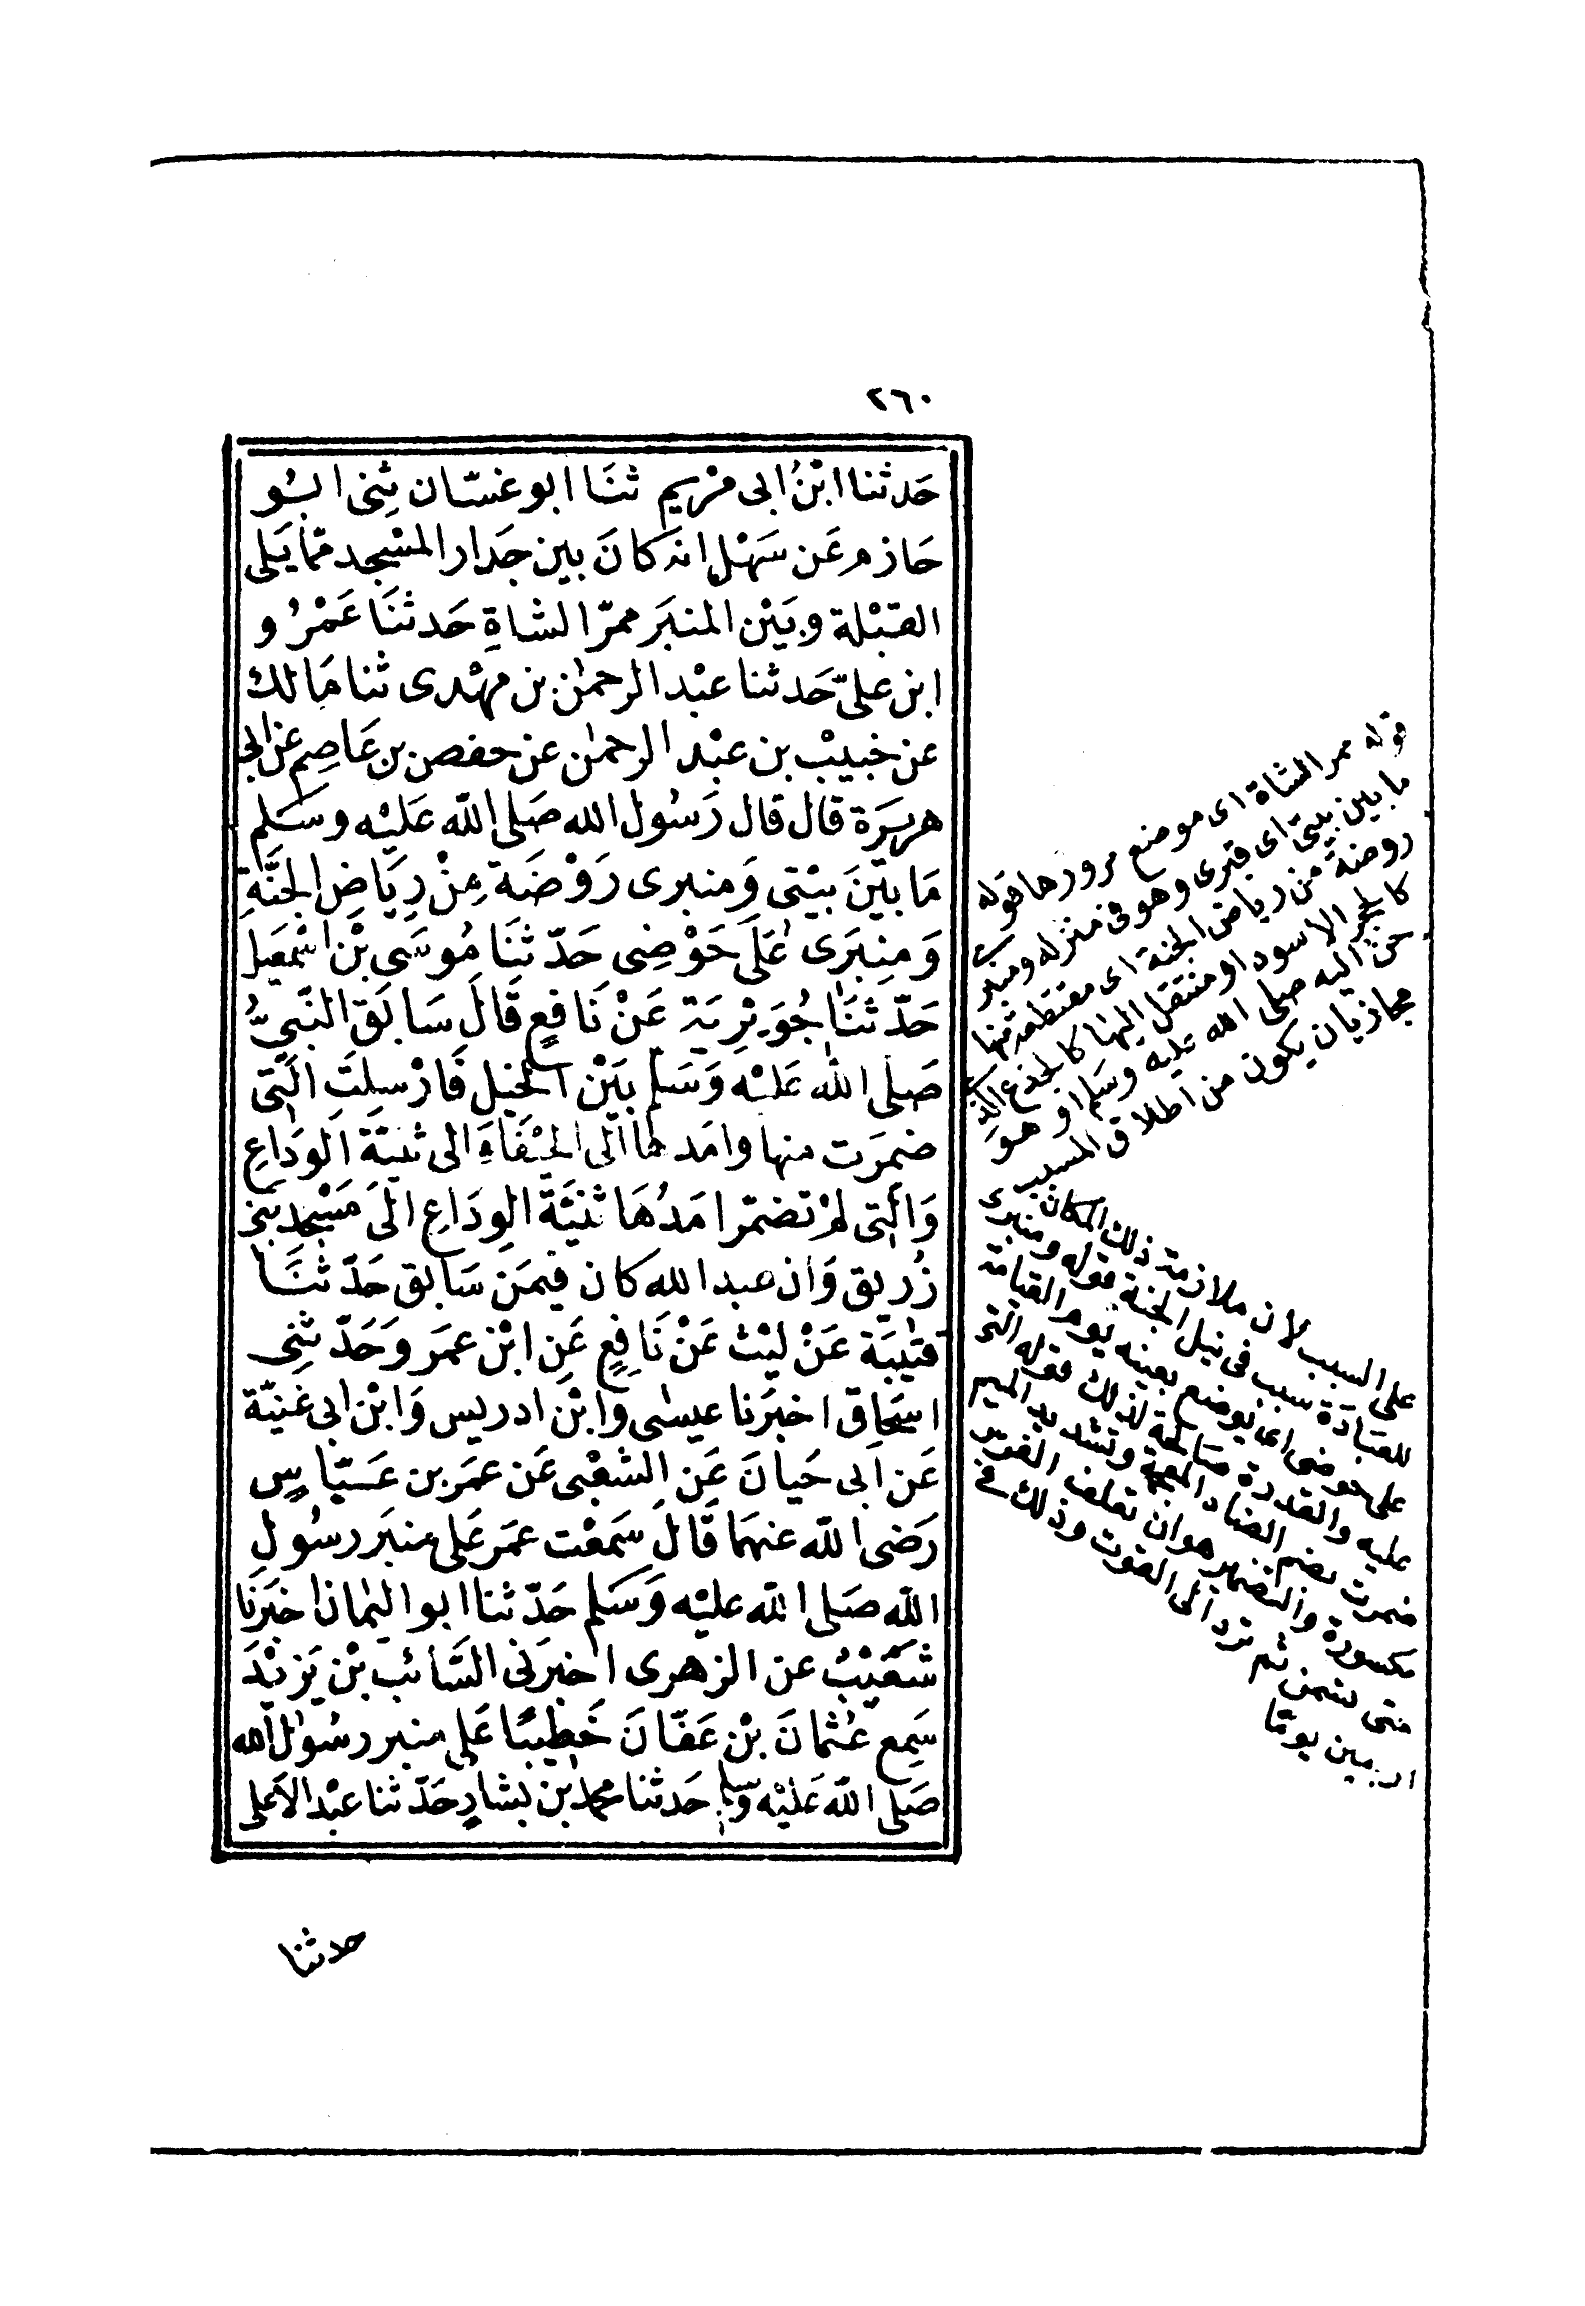 ٢٦٠
حَدثنا ابْنُ ابى مرْيم ثنَا ابو غسّان ثِنى ابُو
حَازم عَن سَهْل انه كانَ بين جَدار المسْجد ممّا يَلى
القبْلة وبَيْن المنبَر ممرّ الشاةِ حَدثنَا عَمْرُو
ابن علىّ حَدثنا عبْد الرحمٰن بن مهْدى ثنا مَالك
عن خبيبْ بن عبْد الرحمٰن عن حفص بن عَاصِم عن ابى
هريرَة قال قال رَسُول الله صَلى اللّه عَليْه وسَلم
مَا بيْنَ بيْتى وَمنبرى رَوْضَة مِنْ رِيَاضِ الجنَّةِ
وَمنِبَرى عَلَى حَوْضِى حَدّثنَا مُوسَى بْن اسْمعيَل
حَدّثنَا جُوَيْرِيَة عَنْ نَافِعٍ قَالَ سَابَق النَّبىُّ
صَلى اللّٰه عَليْه وَسَلم بَيْن الخيْل فَارْسِلتَ الَتى
ضمِرَت منها وامَدها الَى الحَفْيَاءِ الى ثنيَّة الوَدَاعِ
وَالَتى لمْ تضمّر امَدُهَا ثنيَّة الوِدَاعِ الىَ مَسْجد بَنى
زُرَيق وَان عبد الله كان فيمَن سَابق حَدّثنَا
قتيبَة عَنْ ليْث عَنْ نَافِعٍ عَنِ ابْن عمَر وحَدّثنِى
اسحَاق اخبرَنا عيسٰى وابْن ادريس وَابْن ابى غنيّة
عَن ابى حَيانَ عَنِ الشعْبى عَن عمَر بن عَبّاسٍ
رَضى اللّه عنهمَا قَالَ سَمعْت عمَر عَلى منبَر رسُولِ
اللّه صَلى اللّه عليْه وَسَلم حَدّثنا ابو اليَمان اخبَرنَا
شعَيْبُ عن الزهرى اخبرَنى السَّائب بْن يَزيْدَ
سَمِع عُثمانَ بْن عَفّانَ خَطِيبًا عَلى منبر رسُول الله
صَلى اللّه عَليْه وسلم حَدثنا محمد بن بَشارٍ حَدّثنا عبْد الاَعلى
حدثنا
قوله ممر الشاة اى موضع مرورها قوله
ما بين بيتى اى قبرى وهو فى منزله ومنبرى
روضة من رياض الجنة اى مقتطعة منها
كالحجر الاسود او منتقل اليها كالجذع الذى
حنّ اليه صلى الله عليه وسلم او هو
مجاز بان يكون من اطلاق المسبب
على السبب لان ملازمة ذلك المكان
للعبادة سبب فى نيل الجنة قوله ومنبرى
على حوضى اى يوضع بعينه يوم القيامة
عليه والقدرة صالحة لذلك قوله التى
ضمرت بضم الضاد المعجمة وتشديد الميم
مكسورة والتضمير هو ان تعلف الفرس
حتى تسمن ثم ترد الى القوت وذلك فى
اربعين يومًا